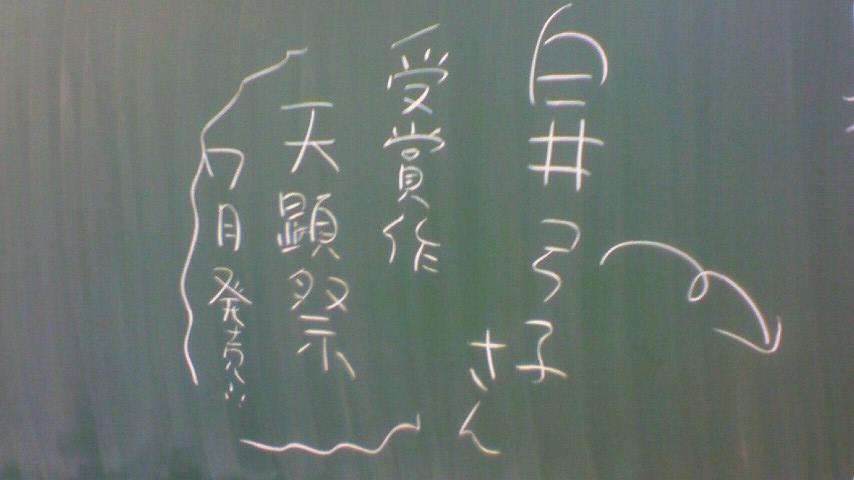 白井弓子さん
受賞作
天顕祭
7月発売!!